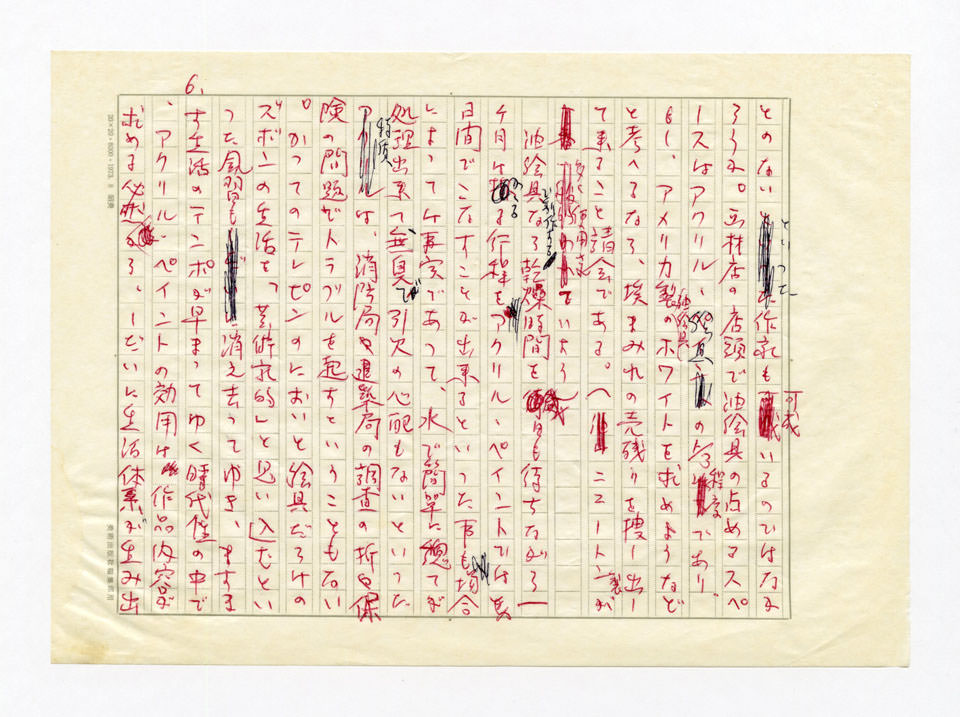 とのないといった作家も可成いるのではなか
ろうか。画材店の店頭で油絵具の占めるスペ
ースはアクリル絵具の 程度であり、
もし、アメリカ製油絵具のホワイトを求めようなど
と考へるなら、埃まみれの売残りを捜し出し
て来ること請合である。(ニュートン製が
多く使用されていよう
油絵具なら乾燥時間を 何日も待ちながら一
ヶ月はかゝる行程をアクリル・ペイントでは数
日間でこなすことが出来るといった事も場合
によっては事実であって、水で簡単に総てが
処理出来て無臭で引火の心配もないといった
特質は、消防局や建築局の調査の折や保
険の問題でトラブルを起すということもない
。かつてのテレピンのにおいと絵具だらけの
ズボンの生活を「芸術家的」と思い込んだとい
った風習も消え去ってゆき、ますます
生活のテンポが早まってゆく時代性の中で
、アクリル・ペイントの効用は作品内容が
求める必然から、しだいに生活体系が生み出
6.
20×20・6000・1973. 8